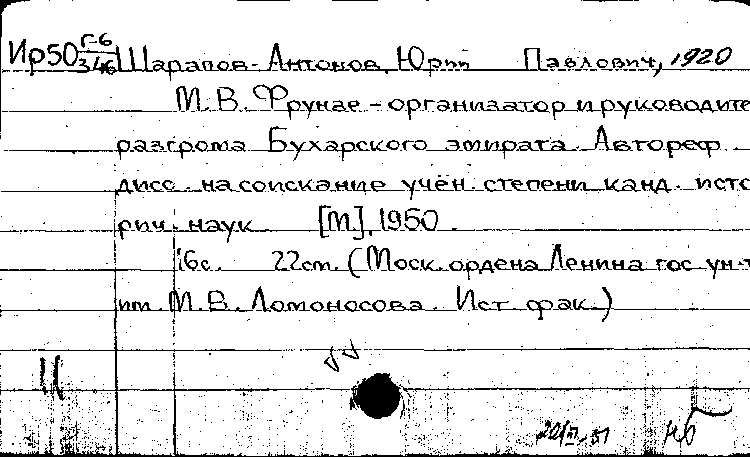 Ир50 Г-6/346 Шарапов-Антонов, Юрий Павлович, 1920
М.В. Фрунзе - организатор и руководите
разгрома Бухарского эмирата. Автореф.
дисс. на соискание учён. степени канд. исто
рич. наук. [М], 1950.
16с. 22см. (Моск. ордена Ленина гос. ун-т
им. М.В. Ломоносова. Ист. фак.)